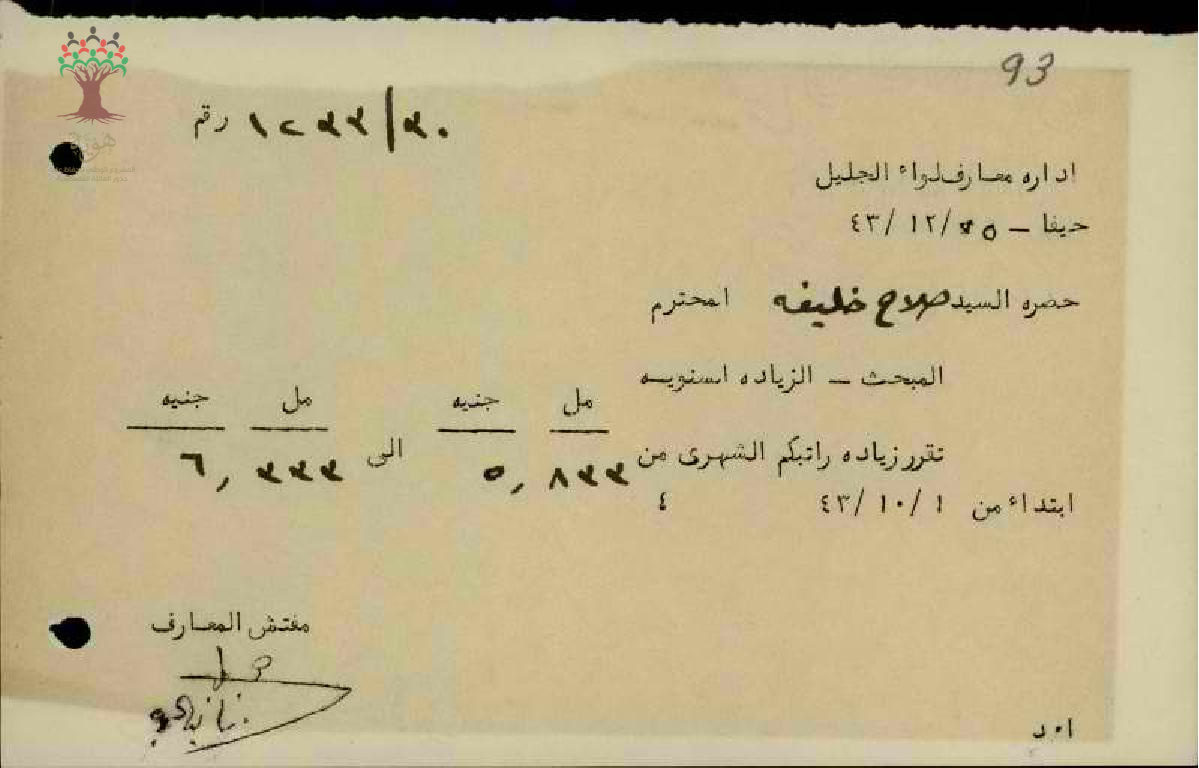 93
رقم ١٢٣٣/٣٠
اداره معارف لواء الجليل
حيفا – /١٢ /٤٣
حضره السيد صلاح خليفه المحترم
المبحث – الزياده السنويه
مل جنيه مل جنيه
تقرر زياده راتبكم الشهرى من ٥,٨٣٣ الى ٦,٣٣٣
ابتداء من ١ /١٠ /٤٣ ٤
مفتش المعارف
هوية